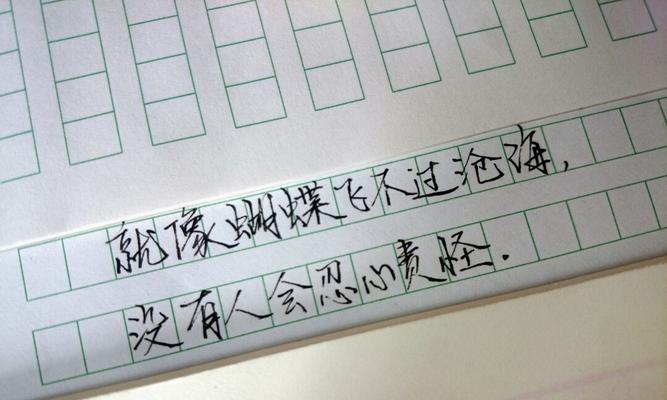 就像蝴蝶飞不过沧海,
没有人会忍心责怪.